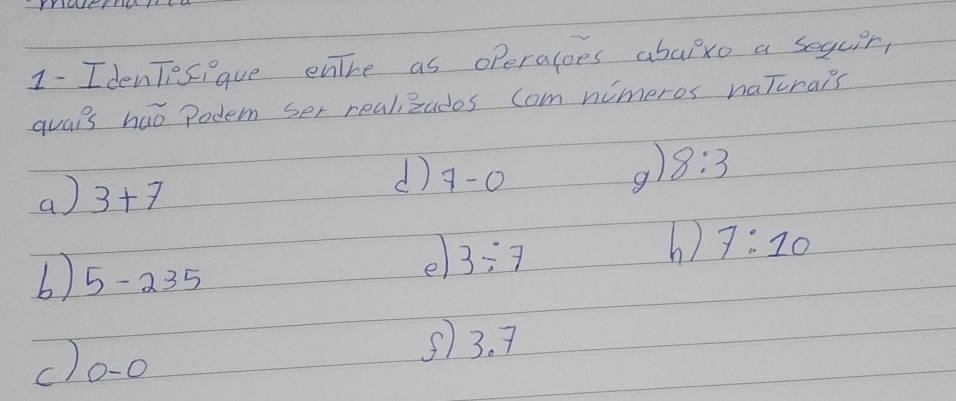 1- Identifique entre as operações abaixo a seguir,
quais não podem ser realizados com números naturais
a) 3+7
d) 7-0
g) 8:3
b) 5-235
e) 3÷7
h) 7:10
c) 0-0
f) 3.7